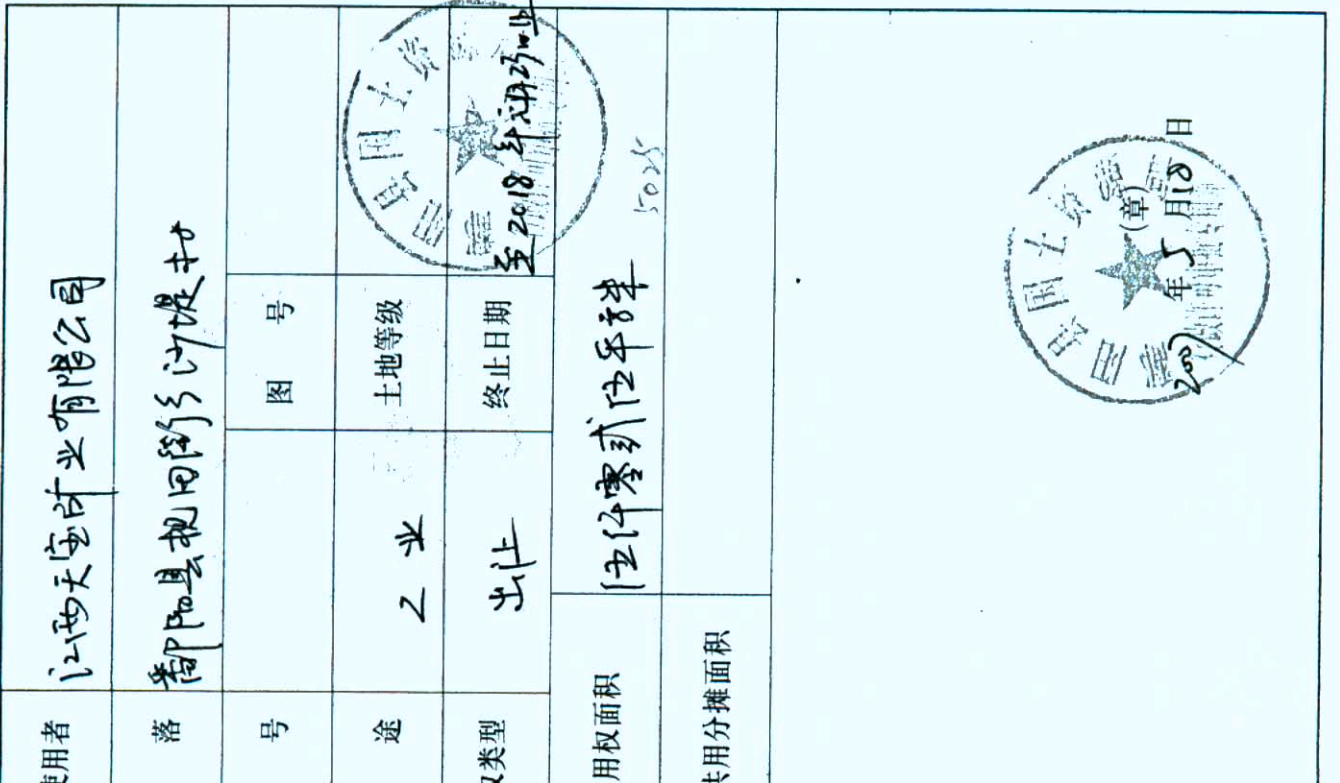 使用者 江西天宝矿业有限公司
落 鄱阳县枧田街乡沙堤
号
图 号
途 工业
土地等级
权类型 出让
终止日期 至2018年
用权面积 伍仟零贰伍平方米
5025
共用分摊面积
国土资
县国土资源
(章)
年5月18日